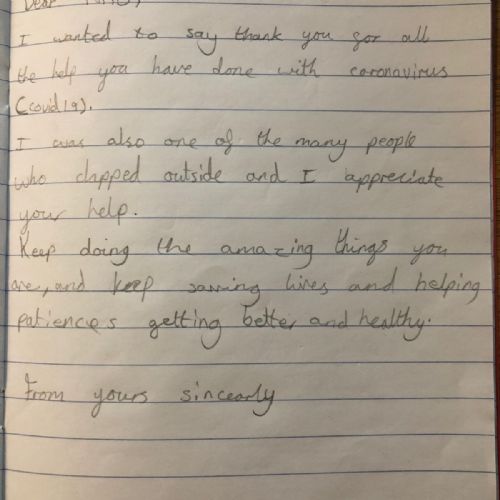 Dear
I wanted to say thank you for all
the help you have done with coronavirus
(covid19).
I was also one of the many people
who clapped outside and I appreciate
your help.
Keep doing the amazing things you
are, and keep saving lives and helping
patiences getting better and healthy.
From yours sincearly